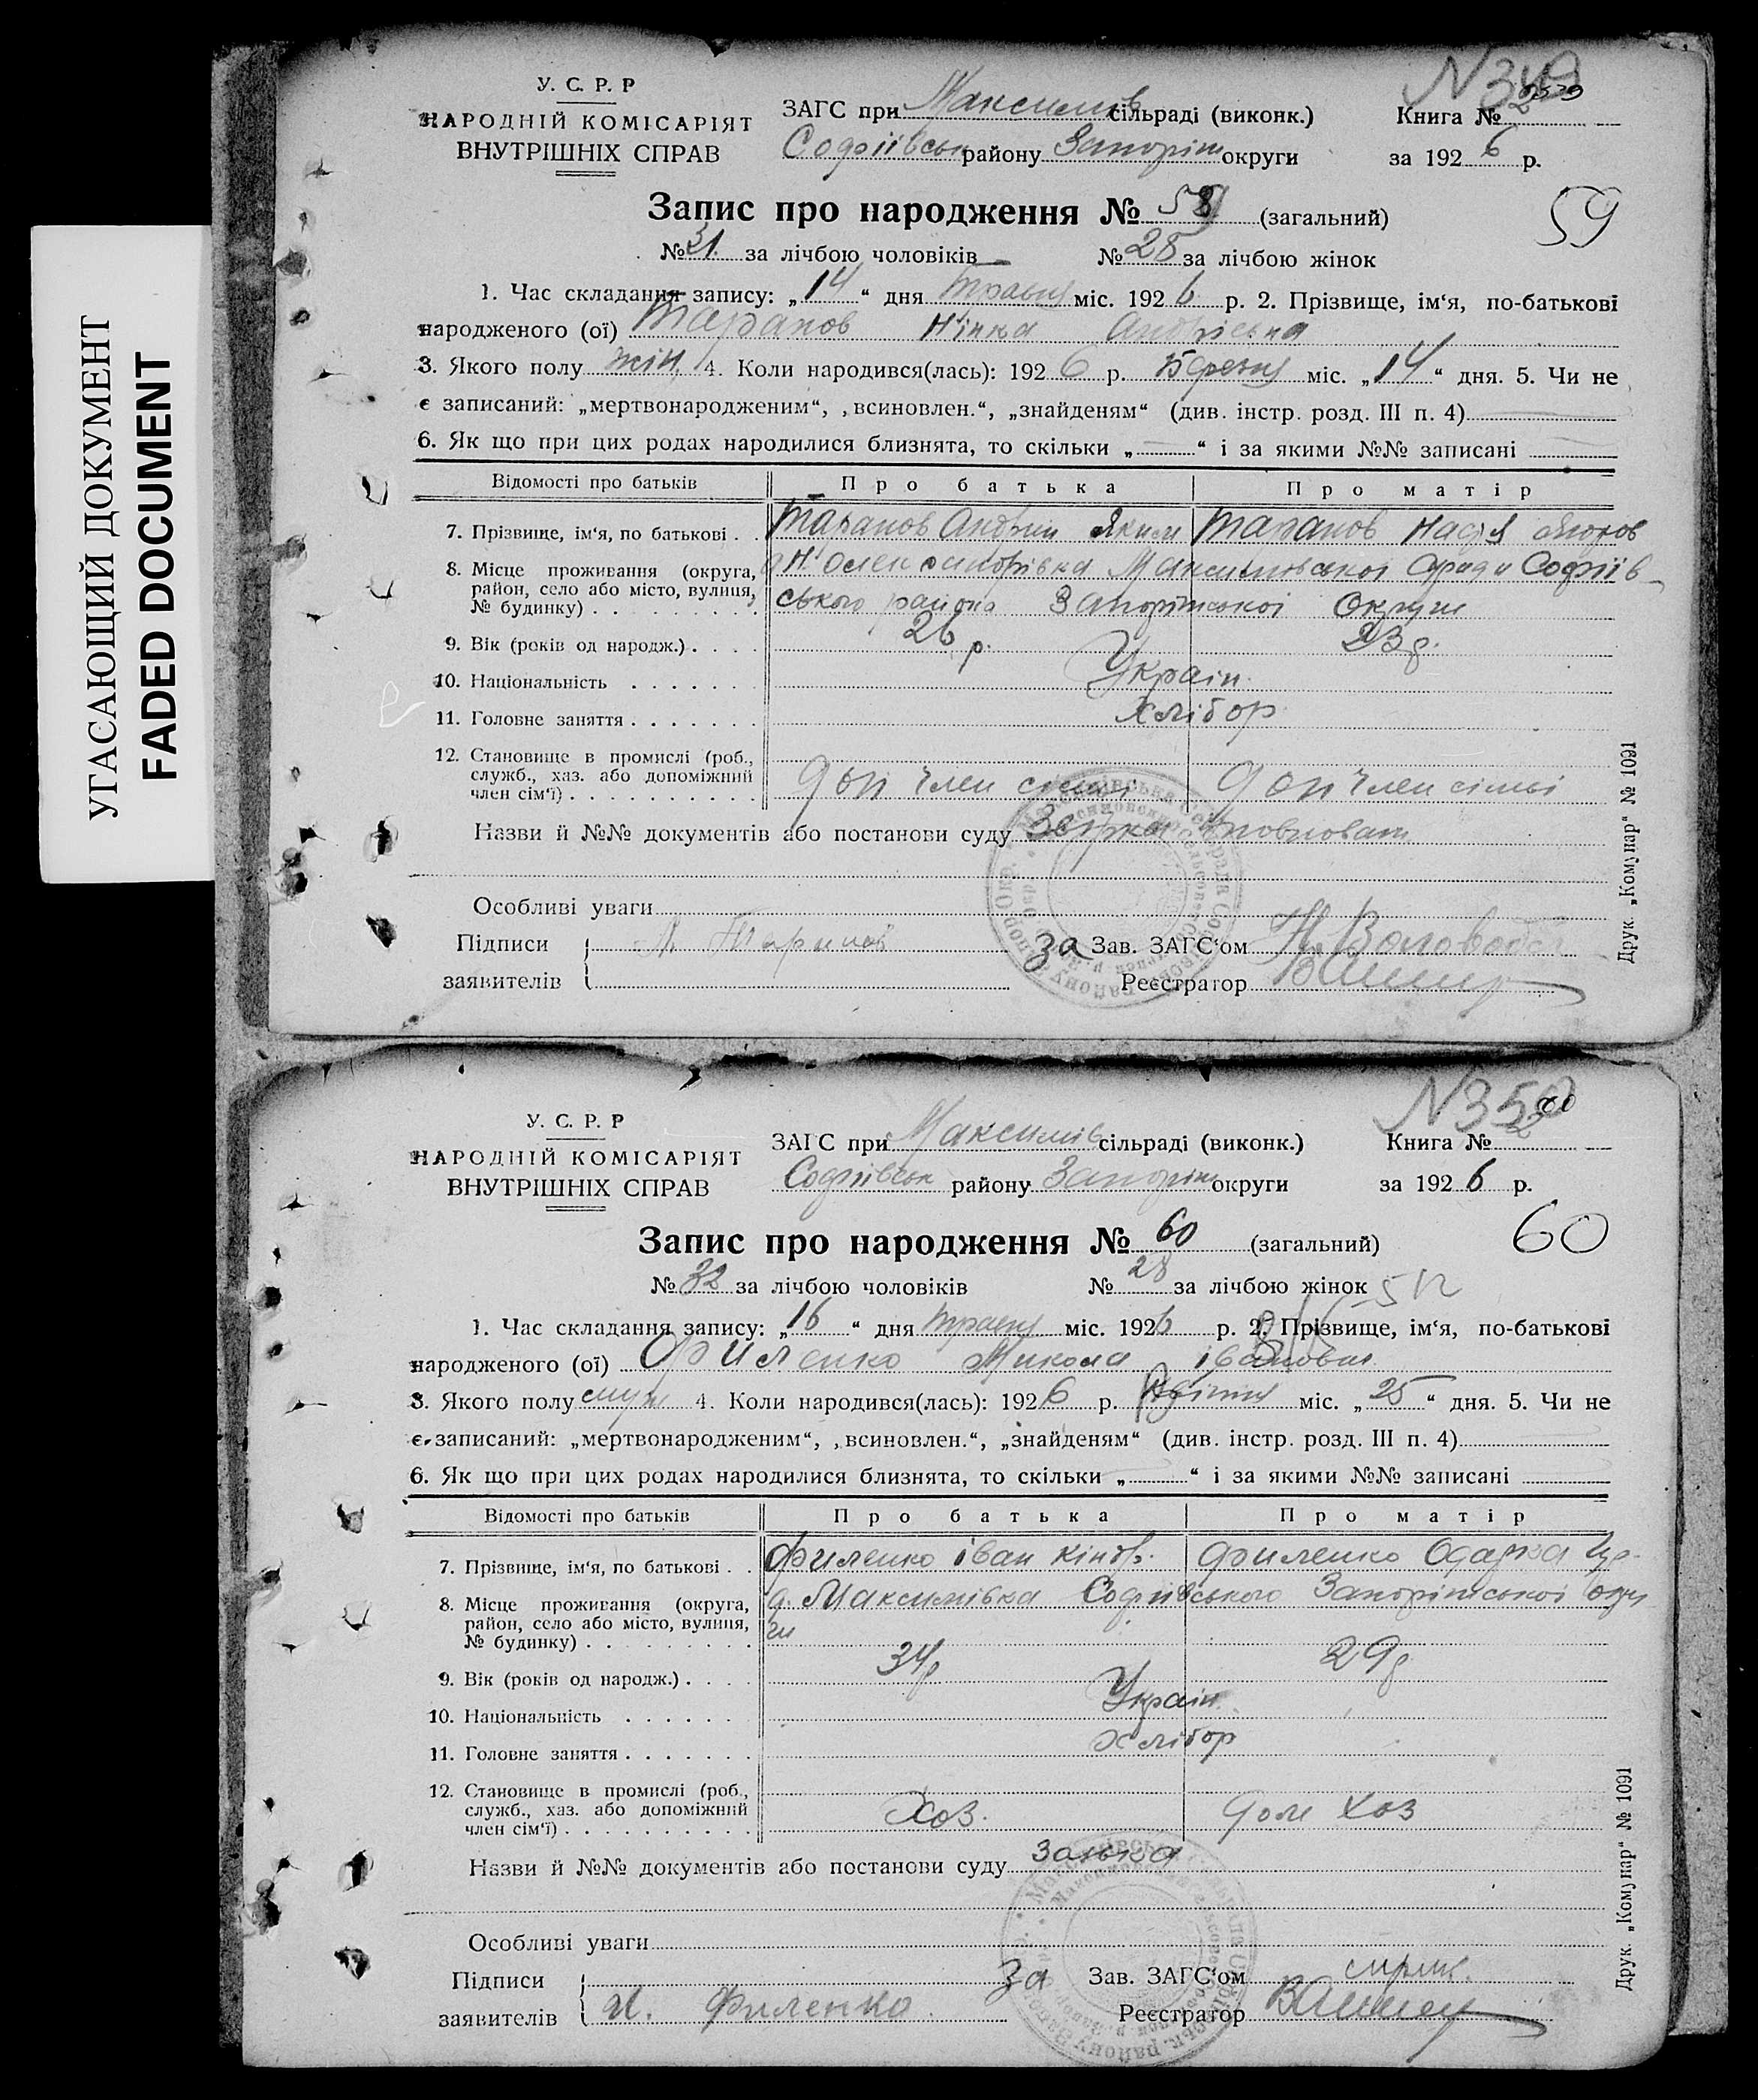 УГАСАЮЩИЙ ДОКУМЕНТ
FADED DOCUMENT
У. С. Р. Р
НАРОДНІЙ КОМІСАРІЯТ
ВНУТРІШНІХ СПРАВ
ЗАГС при Максимів сільраді (виконк.)
Книга № 2
Софіївськ району Запоріж округи
за 1926 р.
Запис про народження № 59 (загальний)
59
№ 31 за лічбою чоловіків № 28 за лічбою жінок
1. Час складання запису: „14“ дня травня міс. 1926 р. 2. Прізвище, ім‘я, по-батькові
народженого (ої) Таранов Нінка Андрієвна
3. Якого полу жін. 4. Коли народився(лась): 1926 р. Березня міс. „14“ дня. 5. Чи не
є записаний: „мертвонародженим“, „всиновлен.“, „знайденям“ (див. інстр. розд. III п. 4)
6. Як що при цих родах народилися близнята, то скільки „—“ і за якими №№ записані —
Відомості про батьків Про батька Про матір
7. Прізвище, ім‘я, по батькові . . Таранов Андрій Яким Таранов Надія
8. Місце проживання (округа, район, село або місто, вулиця, № будинку) . . . Н. Олександрівка Максимівської Сради Софіїв-
ського района Запоріжської Округи
9. Вік (років од народж.) . . . . 26 р. 23 р.
10. Національність . . . . . . Україн.
11. Головне заняття . . . . . . . Хлібор
12. Становище в промислі (роб., служб., хаз. або допоміжний член сім‘ї) . . . Доп член сімьі Доп член сімьі
Назви й №№ документів або постанови суду
Особливі уваги
Підписи заявителів
за Зав. ЗАГС‘ом
Реєстратор
Друк. „Комунар“ № 1091
У. С. Р. Р
НАРОДНІЙ КОМІСАРІЯТ
ВНУТРІШНІХ СПРАВ
ЗАГС при Максимів сільраді (виконк.)
Книга № 2
Софіївськ району Запоріж округи
за 1926 р.
Запис про народження № 60 (загальний)
60
№ 32 за лічбою чоловіків № 28 за лічбою жінок
1. Час складання запису: „16“ дня травня міс. 1926 р. 2. Прізвище, ім‘я, по-батькові
народженого (ої) Филенко Микола Іванович
3. Якого полу муж 4. Коли народився(лась): 1926 р. Квітня міс. „25“ дня. 5. Чи не
є записаний: „мертвонародженим“, „всиновлен.“, „знайденям“ (див. інстр. розд. III п. 4)
6. Як що при цих родах народилися близнята, то скільки „—“ і за якими №№ записані
Відомості про батьків Про батька Про матір
7. Прізвище, ім‘я, по батькові . . Филенко Іван Кіндр. Филенко Одарка
8. Місце проживання (округа, район, село або місто, вулиця, № будинку) . . . д. Максимівка Софіївського Запоріжської окру
ги
9. Вік (років од народж.) . . . . 34 р 29 р
10. Національність . . . . . . Україн.
11. Головне заняття . . . . . . . Хлібор
12. Становище в промислі (роб., служб., хаз. або допоміжний член сім‘ї) . . . Хоз. Дом Хоз
Назви й №№ документів або постанови суду
Особливі уваги
Підписи заявителів И. Филенко
за Зав. ЗАГС‘ом
Реєстратор
Друк. „Комунар“ № 1091